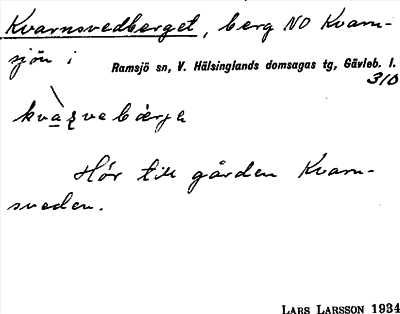 Kvarnsvedberget, berg NO Kvarn-
sjön i Ramsjö sn, V. Hälsinglands domsagas tg, Gävleb. l.
310
Hör till gården Kvarn-
sveden.
LARS LARSSON 1934